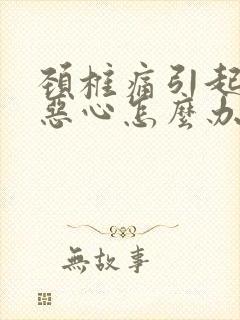 頚椎痛引起
惡心怎麼办
無故事